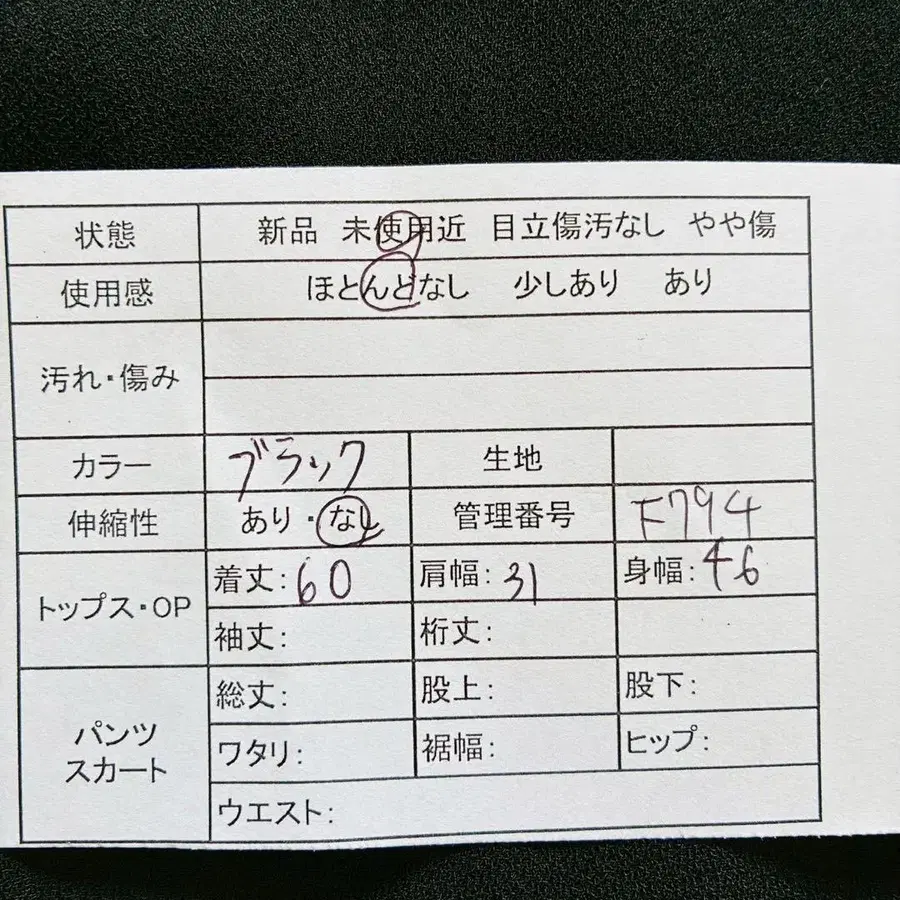 状態 新品 未使用近 目立傷汚なし やや傷
使用感 ほとんどなし 少しあり あり
汚れ・傷み
カラー ブラック 生地
伸縮性 あり・なし 管理番号 F794
トップス・OP 着丈: 60 肩幅: 31 身幅: 46
袖丈: 裄丈:
パンツ
スカート
総丈: 股上: 股下:
ワタリ: 裾幅: ヒップ:
ウエスト: